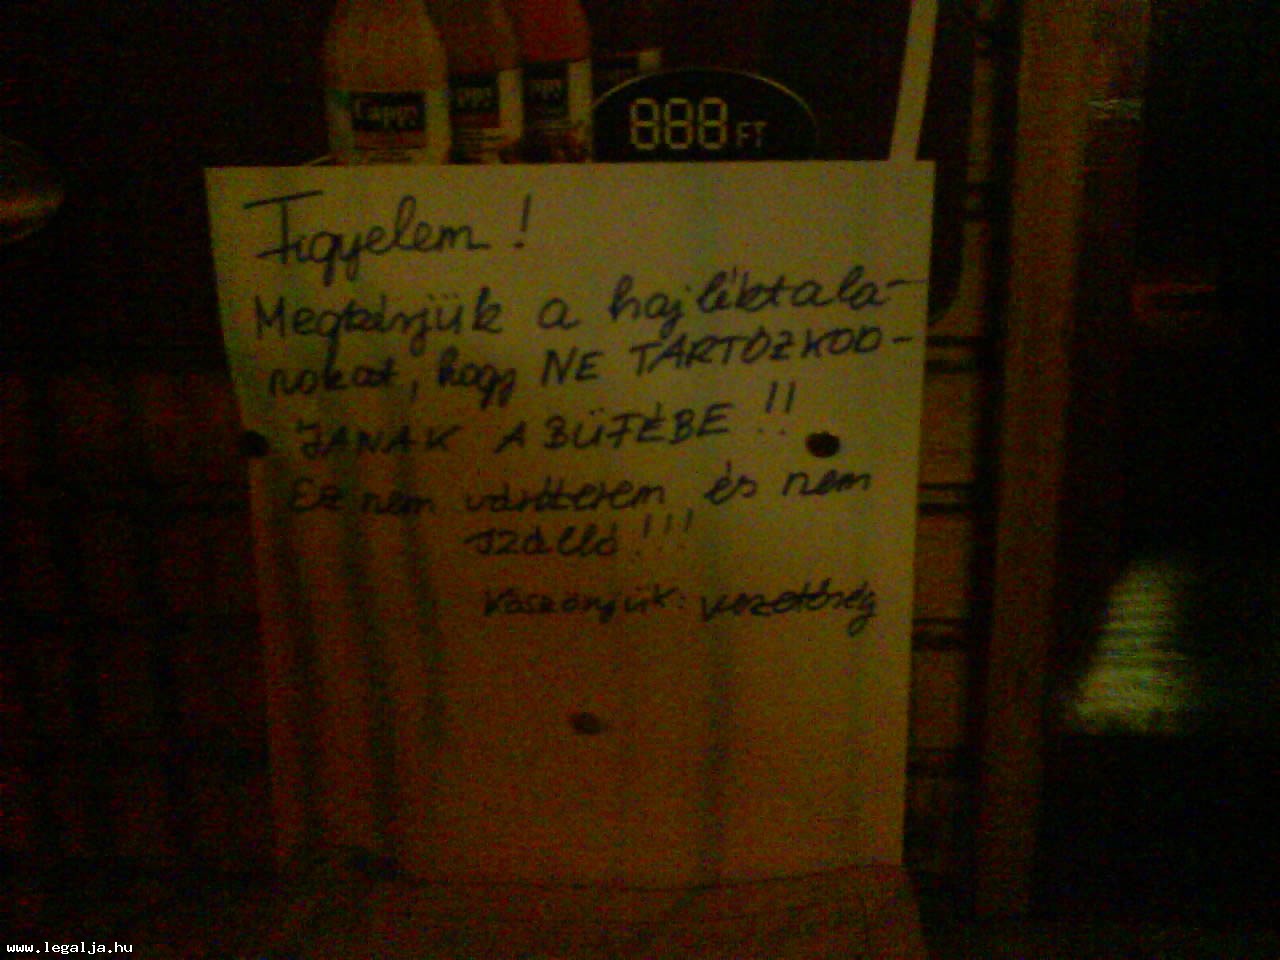 Cappy
ppy
ppy
888 FT
Figyelem!
Megkérjük a hajléktala-
nokat, hogy NE TARTÓZKOD-
JANAK A BÜFÉBE!!
Ez nem váróterem és nem
szálló!!!
Köszönjük: vezetőség
www.legalja.hu